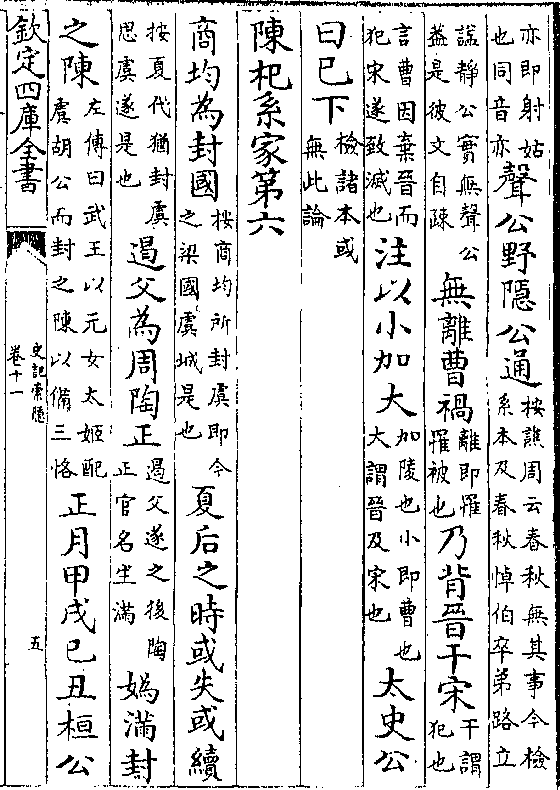 亦即射姑也同音亦聲公野隱公通按譙周云春秋無其事今檢系本及春秋悼伯卒弟路立
諡靜公實無聲公蓋是彼文自疎無離曹禍離即罹罹被也乃背晉干宋干謂犯也
言曹因棄晉而犯宋遂致滅也注以小加大加陵也小即曹也大謂晉及宋也太史公
曰已下檢諸本或無此論
陳杞系家第六
商均為封國按商均所封虞即今之梁國虞城是也夏后之時或失或續
按夏代猶封虞思虞遂是也遏父為周陶正遏父遂之後陶正官名生滿媯滿封
之陳左傳曰武王以元女太姬配虞胡公而封之陳以備三恪正月甲戌已丑桓公
欽定四庫全書
史記索隱
卷十一
五